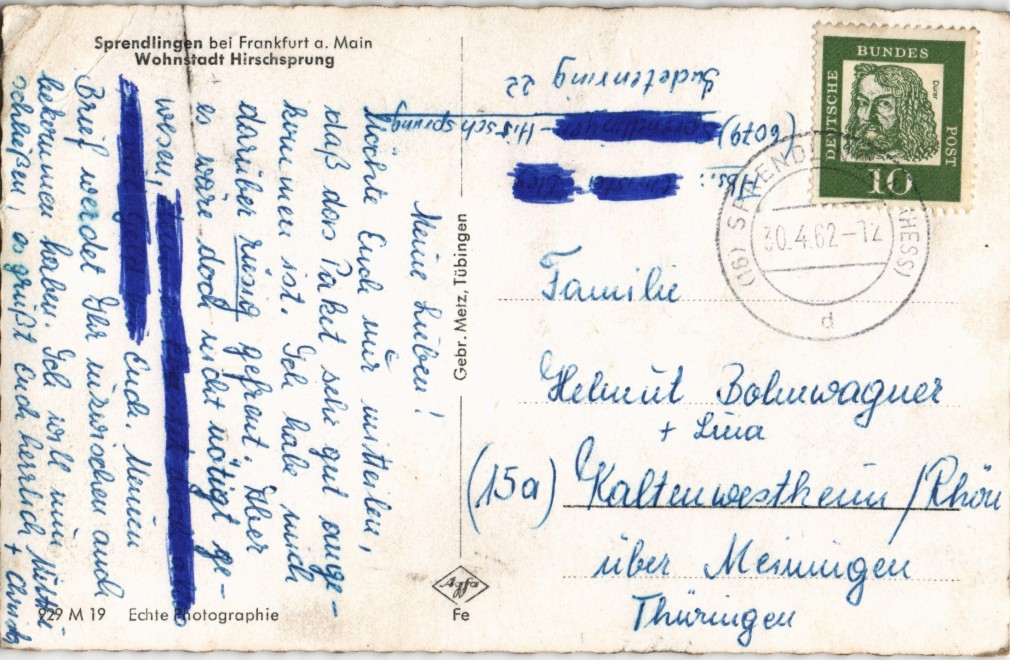 Sprendlingen bei Frankfurt a. Main
Wohnstadt Hirschsprung
Meine Lieben!
Möchte Euch nur mitteilen,
daß das Paket sehr gut ange-
kommen ist. Ich habe mich
darüber riesig gefreut. Aber
es wäre doch nicht nötig ge-
wesen,
Euch. Meinen
Brief werdet Ihr inzwischen auch
bekommen haben. Ich will nun
schließen, es grüßt Euch herzlich +
929 M 19 Echte Photographie
Gebr. Metz, Tübingen
Agfa
Fe
Abs.:
(6079) - Hirschsprung
Sudetenring 22
DEUTSCHE BUNDES POST
Dürer
10
(16) SPRENDL (HESS)
30.4.62-12
d
Familie
Helmut Bohnwagner
+ Lina
(15a) Kaltenwestheim /Rhön
über Meiningen
Thüringen